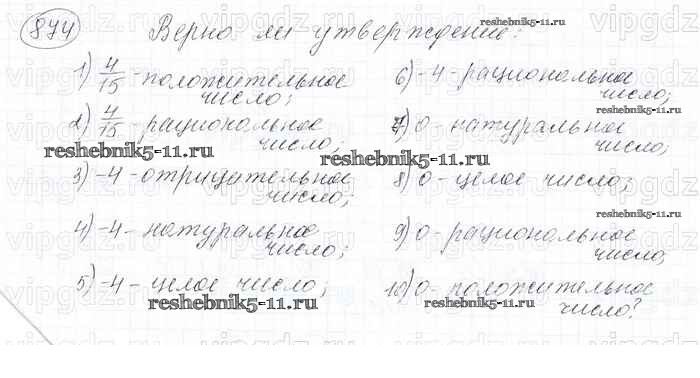 874 Верно ли утверждение:
1) 4/15 - положительное
число;
2) 4/15 - рациональное
число;
3) -4 - отрицательное
число;
4) -4 - натуральное
число;
5) -4 - целое число;
6) -4 - рациональное
число;
7) 0 - натуральное
число;
8) 0 - целое число;
9) 0 - рациональное
число;
10) 0 - положительное
число?
reshebnik5-11.ru
reshebnik5-11.ru
reshebnik5-11.ru
reshebnik5-11.ru
reshebnik5-11.ru
reshebnik5-11.ru
reshebnik5-11.ru